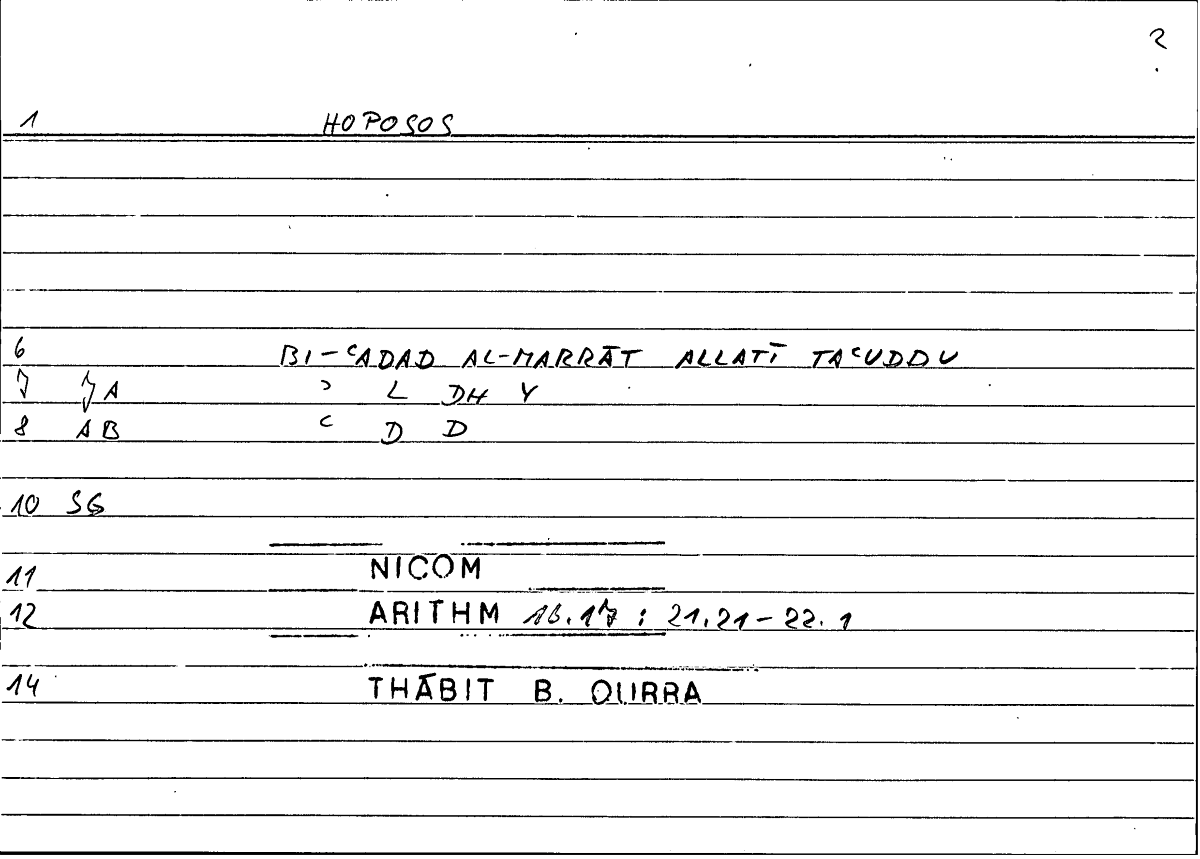 2
1 HOPOSOS
6 BI-ʿADAD AL-MARRĀT ALLATĪ TAʿUDDU
7 7A ʾ L DH Y
8 AB ʿ D D
10 SG
11 NICOM
12 ARITHM 16.17 : 21.21-22.1
14 THĀBIT B. QURRA